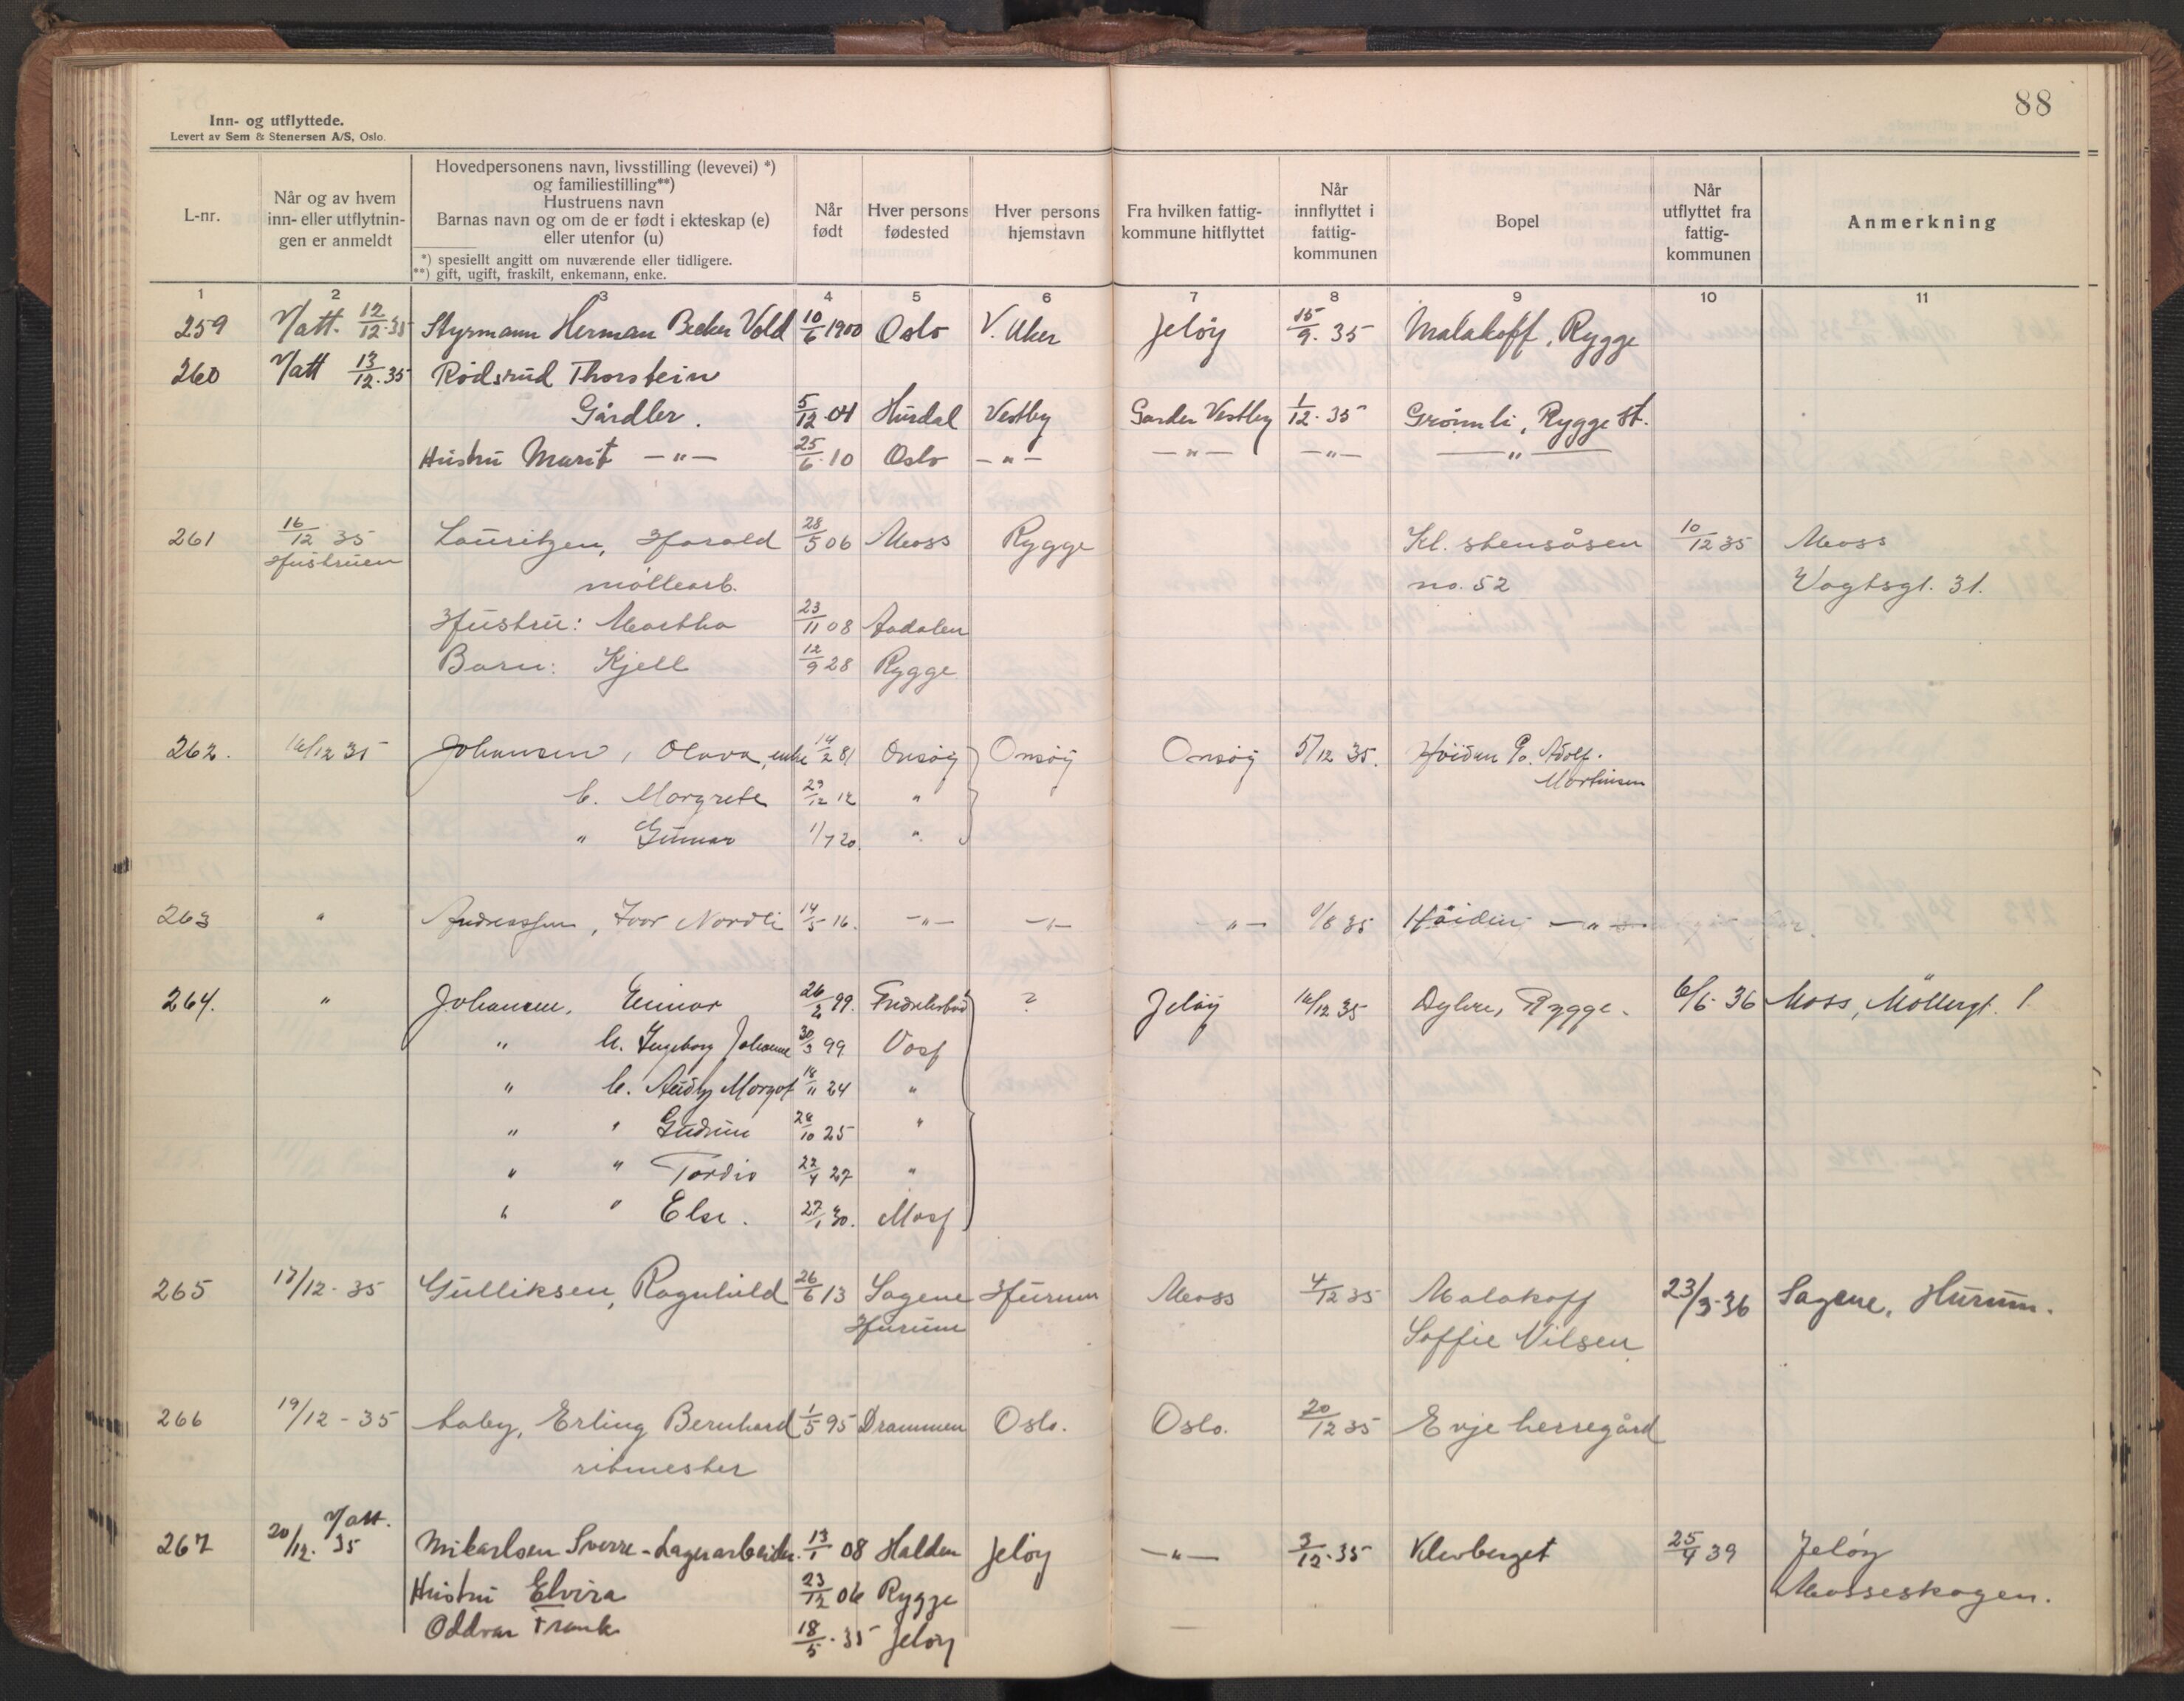 88
Inn- og utflyttede.
Levert av Sem & Stenersen A/S, Oslo.
L-nr. | Når og av hvem inn- eller utflytnin- gen er anmeldt | Hovedpersonens navn, livsstilling (levevei) *) og familiestilling**) Hustruens navn Barnas navn og om de er født i ekteskap (e) eller utenfor (u) *) spesiellt angitt om nuværende eller tidligere. **) gift, ugift, fraskilt, enkemann, enke. | Når født | Hver persons fødested | Hver persons hjemstavn | Fra hvilken fattig- kommune hitflyttet | Når innflyttet i fattig- kommunen | Bopel | Når utflyttet fra fattig- kommunen | Anmerkning
1 2 3 4 5 6 7 8 9 10 11
259 V/att. 12/12.35 Styrmann Herman Becker Vold 10/6 1900 Oslo V. Aker Jeløy 15/9.35 Malakoff, Rygge
260 V/att 13/12.35 Rødsrud Thorstein
Gårdbr. 5/12 04 Hurdal Vestby Garder Vestby 1/12.35 Grønnli, Rygge st.
Hustru Marit —"— 25/6.10 Oslo —"— —"— —"— —"—
261 16/12 35 Lauritzen, Harald 28/5 06 Moss Rygge Kl. stensåsen 10/12 35 Moss
Hustruen møllearb. no. 52 Vogtsgt. 31.
Hustru: Martha 23/11 08 Aadalen
Barn: Kjell 12/9 28 Rygge
262. 16/12 35 Johansen, Olava, enke 14/2 81 Onsøy Onsøy Onsøy 5/12 35. Høiden P.o. Adolf.
Martinsen
b. Margrete 29/12 12 "
" Gunnar 1/7 20. "
263 " Andreassen, Ivar Nordli 14/5 16. —"— —"— —"— 1/8 35 Høiden —"—
264. " Johansen, Einar 26/2 99. ? Jeløy 16/12 35 Dylere, Rygge. 6/6 36 Moss, Møllergt. 1.
" h. Ingeborg Johanne 30/3 99 Voss
" b. Audny Margot 18/11 24 "
" " Gudrun 28/10 25 "
" " Tordis 22/4 27 "
" " Else. 27/1 30. Moss
265 17/12-35 Gulliksen, Ragnhild 26/6 13 Sagene Hurum Moss 4/12 35 Malakoff 23/3-36 Sagene, Hurum.
Hurum Soffie Nilsen
266 19/12-35 Laby, Erling Bernhard 1/5 95 Drammen Oslo. Oslo. 20/12 35 Evje herregård
ritmester
V/att.
267 20/12. 35 Mikarlsen Sverre - Lagerarbeider. 13/1 08 Halden Jeløy —"— 3/12.35 Klevberget 25/4 39 Jeløy
Hustru Elvira 23/12 06 Rygge Mosseskogen.
Oddvar Frank 18/5.35 Jeløy